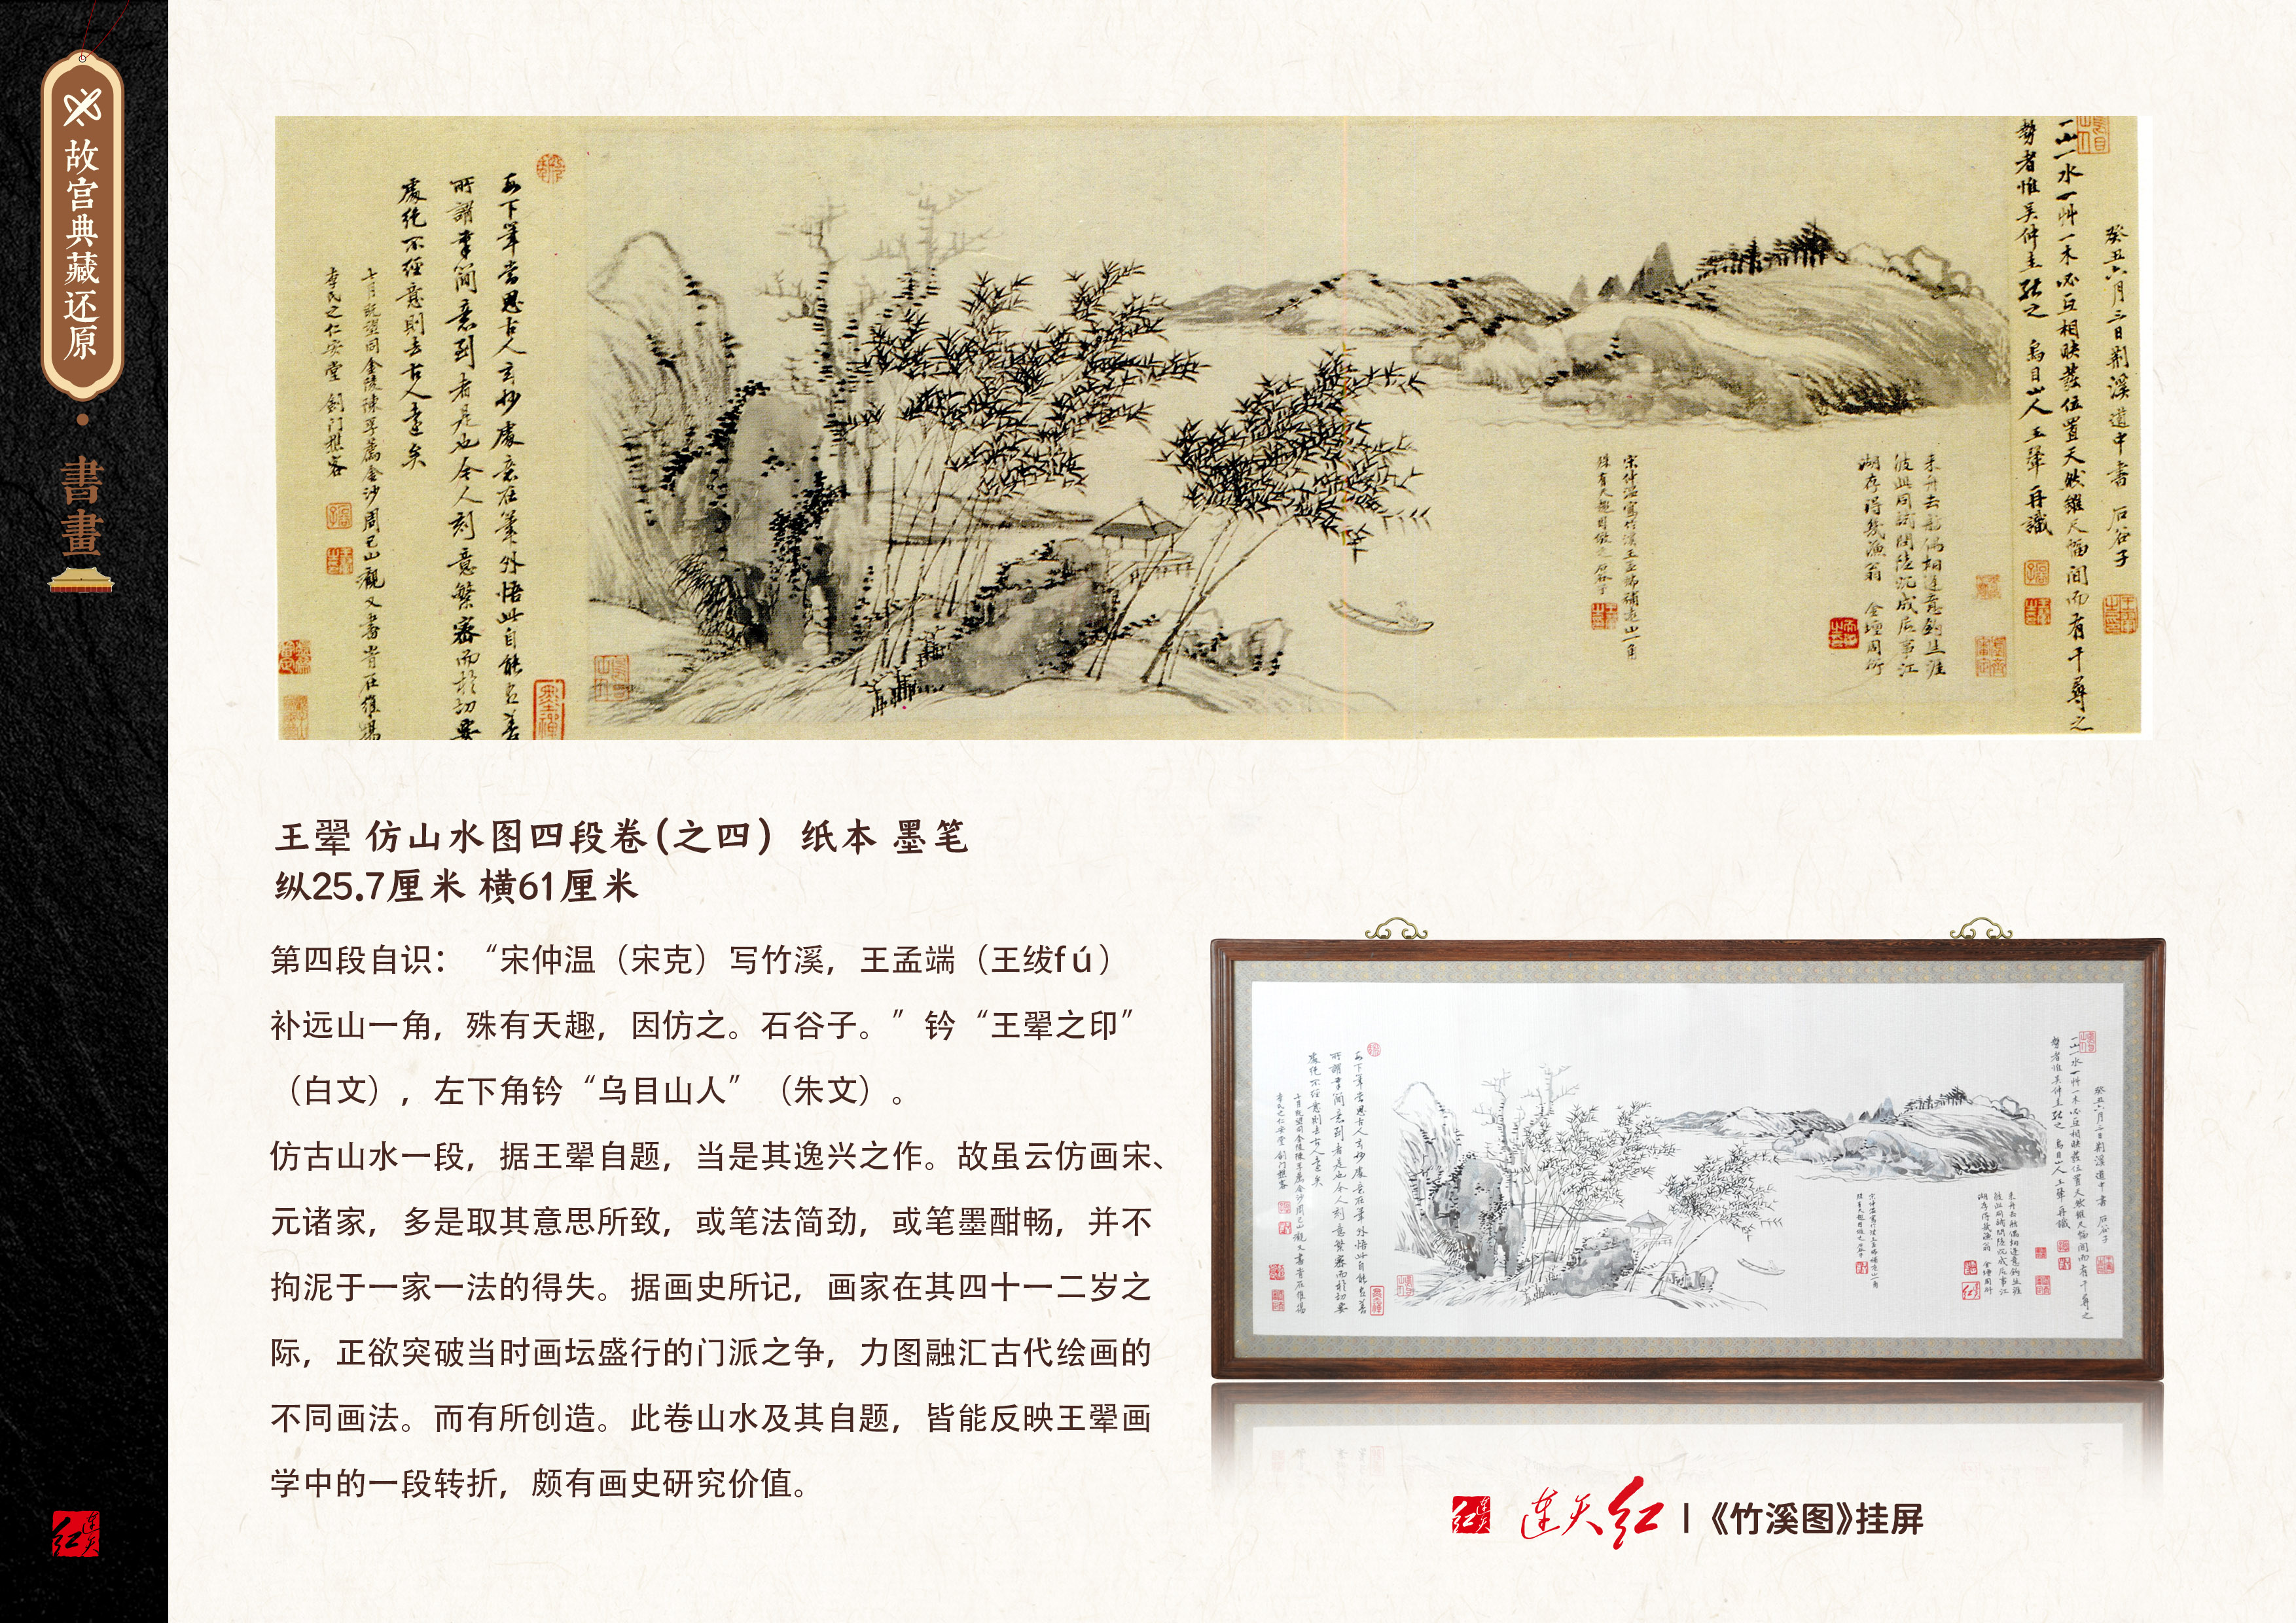 故宫典藏还原
書畫
癸丑六月三日荆溪道中書 石谷子
一山一水一艸一木必互相映發位置天然雖尺幅間而有千尋之
勢者惟吴仲圭能之 烏目山人王翬再識
湖存得幾漁翁 金壇周衍
宋仲温寫竹溪王孟端補遠山一角
殊有天趣因倣之 石谷子
每下筆當思古人玄妙處意在筆外悟此自能盡善
所謂筆簡意到者是也今人刻意繁密而於切要
處絶不經意則去古人遠矣
王翚 仿山水图四段卷(之四) 纸本 墨笔
纵25.7厘米 横61厘米
第四段自识：“宋仲温（宋克）写竹溪，王孟端（王绂fú）
补远山一角，殊有天趣，因仿之。石谷子。”钤“王翚之印”
（白文），左下角钤“乌目山人”（朱文）。
仿古山水一段，据王翚自题，当是其逸兴之作。故虽云仿画宋、
元诸家，多是取其意思所致，或笔法简劲，或笔墨酣畅，并不
拘泥于一家一法的得失。据画史所记，画家在其四十一二岁之
际，正欲突破当时画坛盛行的门派之争，力图融汇古代绘画的
不同画法。而有所创造。此卷山水及其自题，皆能反映王翚画
学中的一段转折，颇有画史研究价值。
连天红
连天红 | 《竹溪图》挂屏